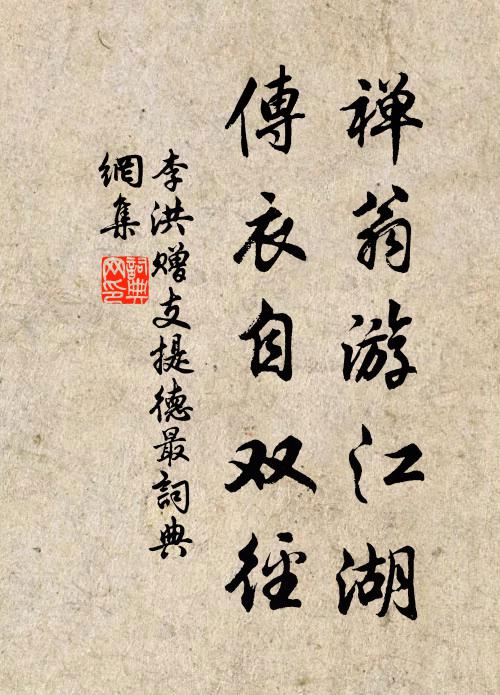 禅翁游江湖
傳衣自双徑
李洪赠支提德最詞典
網集
詞典
网印